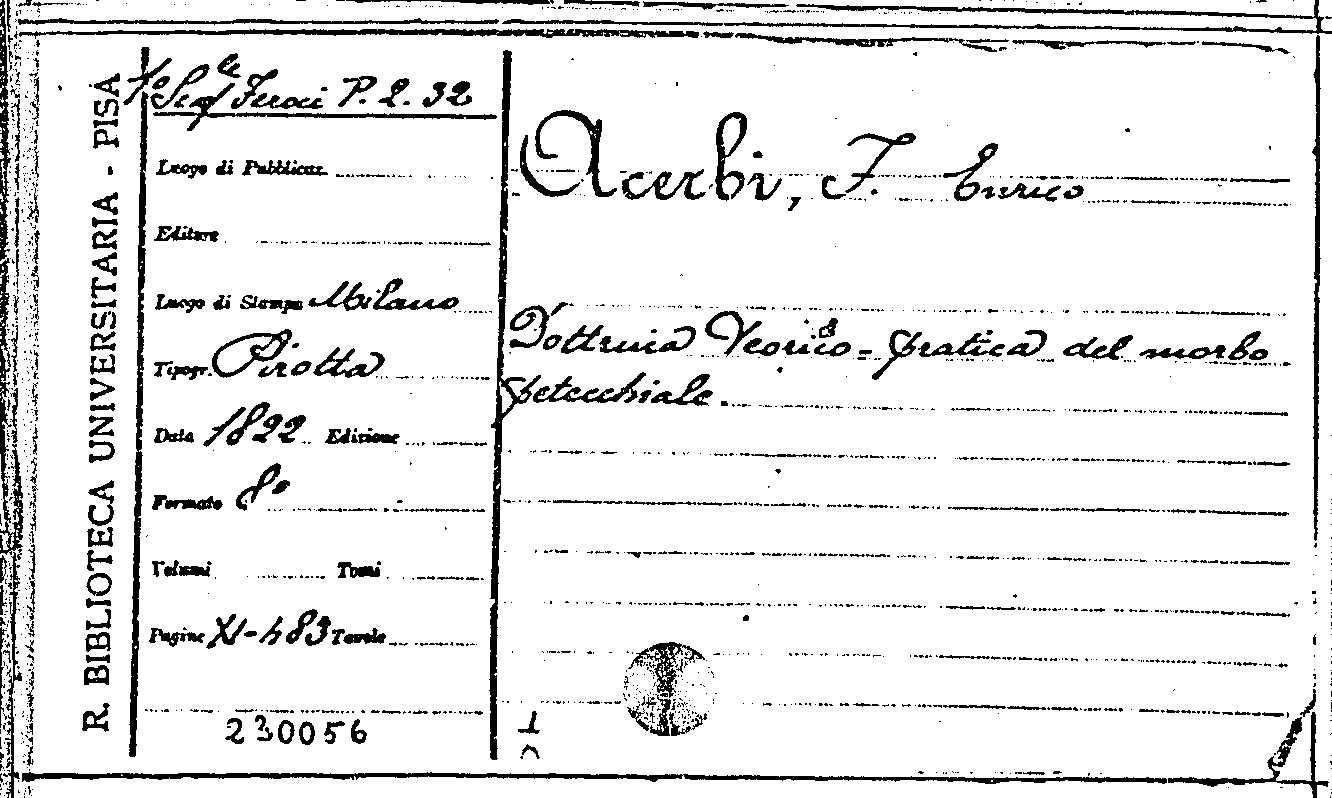 R. BIBLIOTECA UNIVERSITARIA - PISA
Feroci P. 2. 32
Luogo di Pubblicaz.
Editore
Luogo di Stampa Milano
Tipogr. Pirotta
Data 1822 Edizione
Formato 8°
Volumi Tomi
Pagine XI-483 Tavole
230056
Acerbi, F. Enrico
Dottrina Teorico-pratica del morbo
petecchiale.